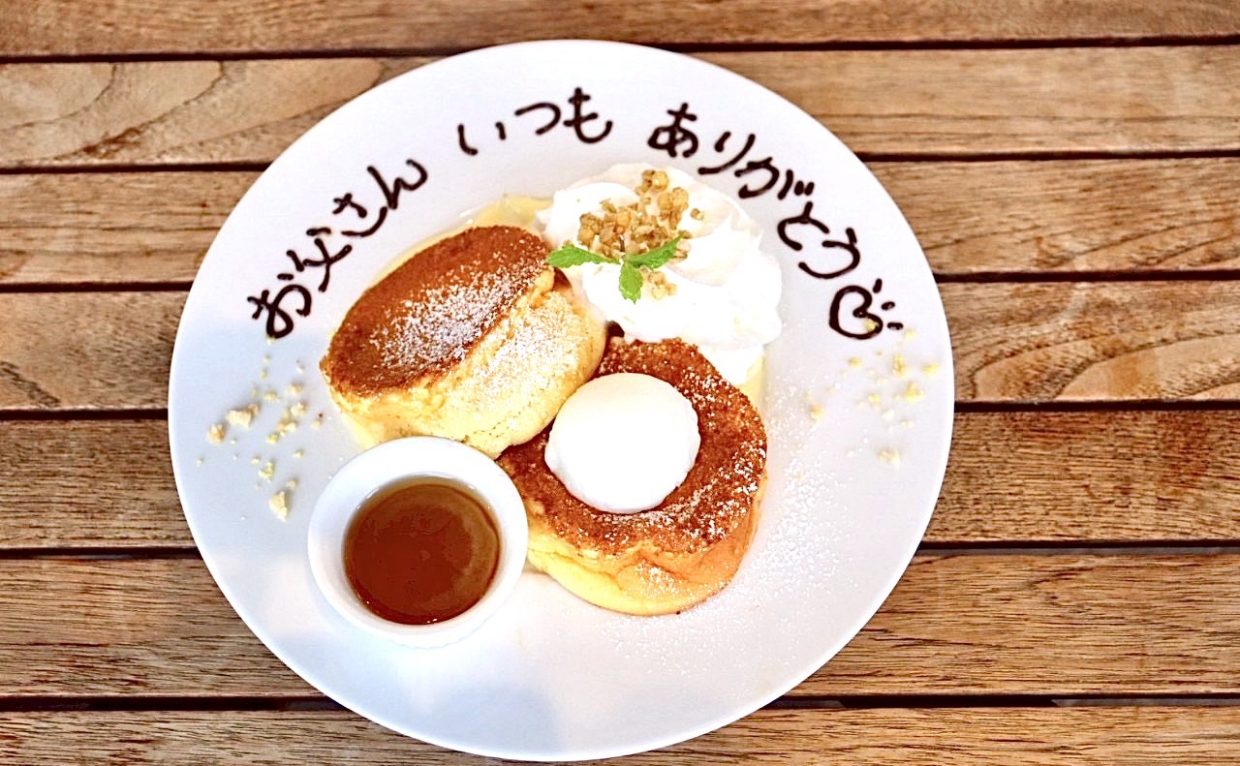 お父さん いつも ありがとう♡